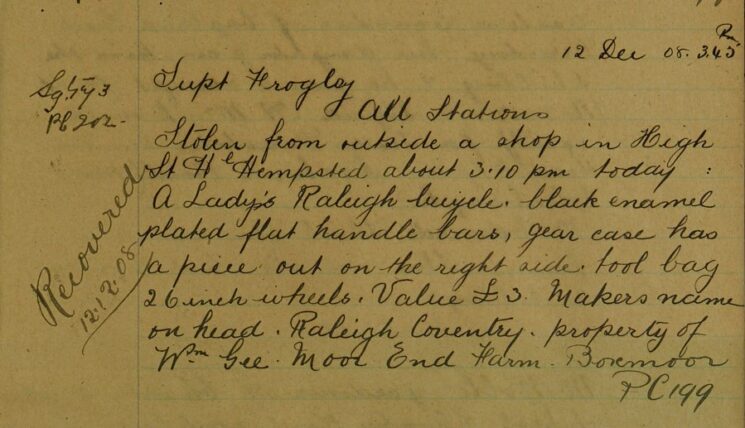 12 Dec 08. 3.45 Pm
Supt Frogley
All Stations
Sgt 3
PC 202
Stolen from outside a shop in High
St H^e Hempsted about 3.10 pm today:
A Lady's Raleigh bicycle. black enamel
plated flat handle bars, gear case has
a piece out on the right side. tool bag
26 inch wheels. Value £3. Makers name
on head. Raleigh Coventry. property of
Wm Gee. Moor End Farm. Boxmoor
PC 199
Recovered
12.12.08